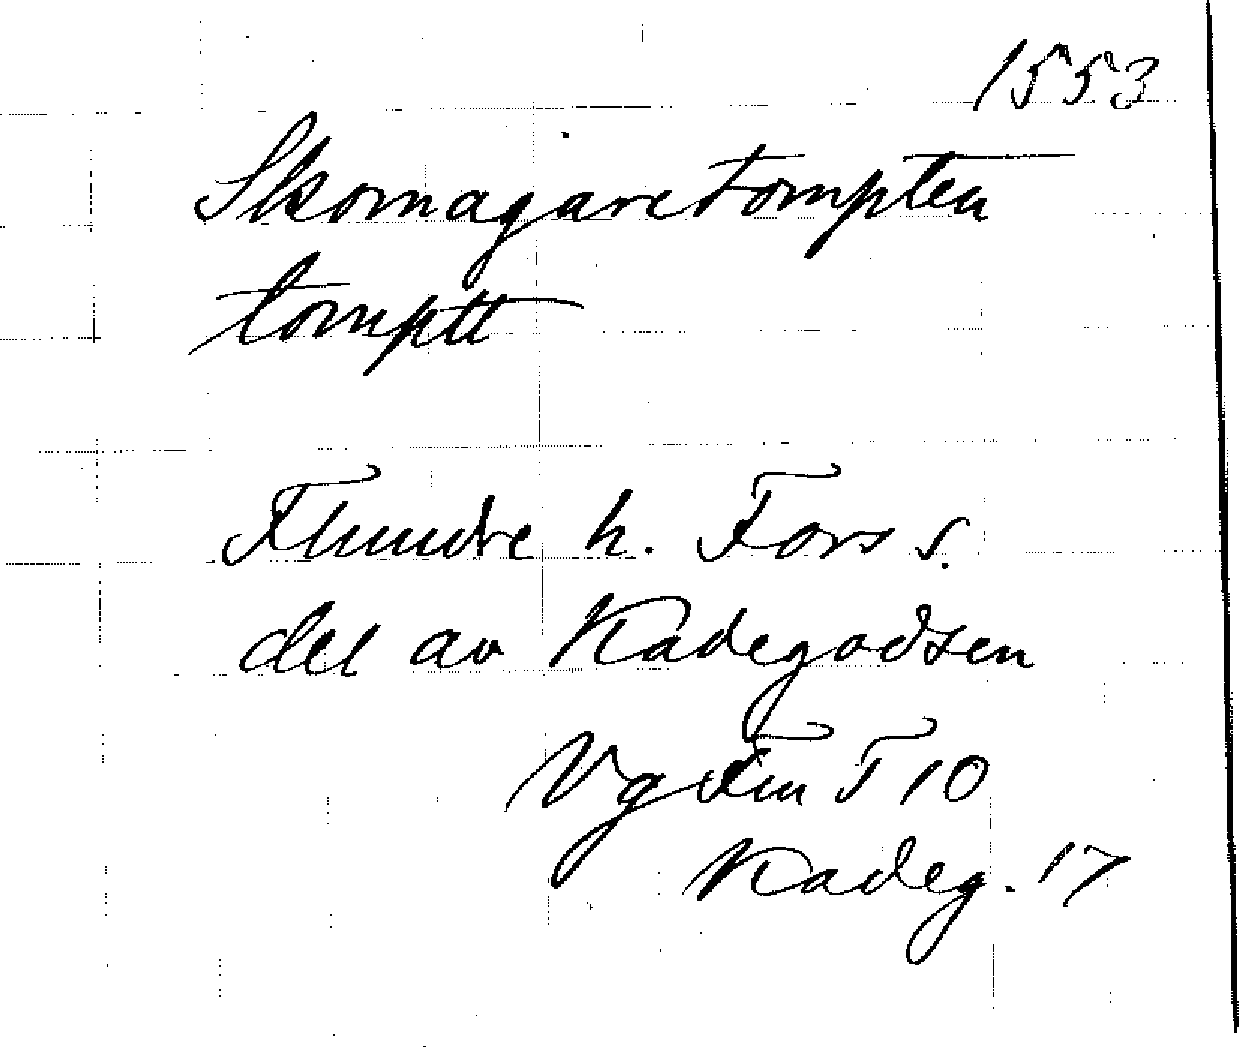 1553
Skomagaretompten
tomptt
Flundre h. Fors s.
del av Kadegodsen
Vg Fru F 10
Kadeg. 17